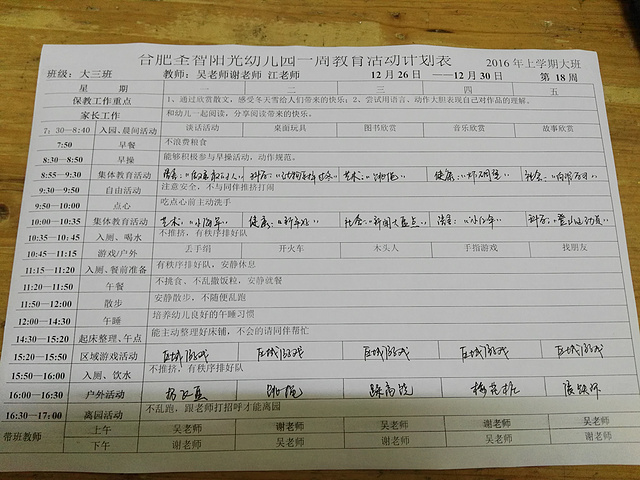 合肥圣智阳光幼儿园一周教育活动计划表 2016年上学期大班
班级：大三班 教师：吴老师谢老师 江老师 12月26日 ——12月30日 第18周
星 期 一 二 三 四 五
保教工作重点 1、通过欣赏散文，感受冬天雪给人们带来的快乐；2、尝试用语言、动作大胆表现自己对作品的理解。
家长工作 和幼儿一起阅读，分享阅读带来的快乐。
7：30—8:40 入园、晨间活动 谈话活动 桌面玩具 图书欣赏 音乐欣赏 故事欣赏
7:50 早餐 不浪费粮食
8:30—8:50 早操 能够积极参与早操活动，动作规范。
8:55—9:30 集体教育活动 语言： 科学： 艺术： 健康： 社会：
9:30—9:50 自由活动 注意安全，不与同伴推挤打闹
9:50—10:00 点心 吃点心前主动洗手
10:00—10:35 集体教育活动 艺术： 健康： 社会：“新闻大盘点” 语言： 科学：
10:35—10:45 入厕、喝水 不推挤，有秩序排好队
10:45—11:15 游戏/户外 丢手绢 开火车 木头人 手指游戏 找朋友
11:15—11:20 入厕、餐前准备 有秩序排好队，安静休息
11:20—11:50 午餐 不挑食、不乱撒饭粒，安静就餐
11:50—12:00 散步 安静散步，不随便乱跑
12:00—14:30 午睡 培养幼儿良好的午睡习惯
14:30—15:20 起床整理、午点 能主动整理好床铺，不会的请同伴帮忙
15:20—15:50 区域游戏活动 区域游戏 区域游戏 区域游戏 区域游戏 区域游戏
15:50—16:00 入厕、饮水 不推挤，有秩序排好队
16:00—16:30 户外活动 跳绳 踩高跷 梅花桩
16:30—17:00 离园活动 不乱跑，跟老师打招呼才能离园
带班教师 上午 吴老师 谢老师 吴老师 谢老师 吴老师
下午 谢老师 吴老师 谢老师 吴老师 谢老师